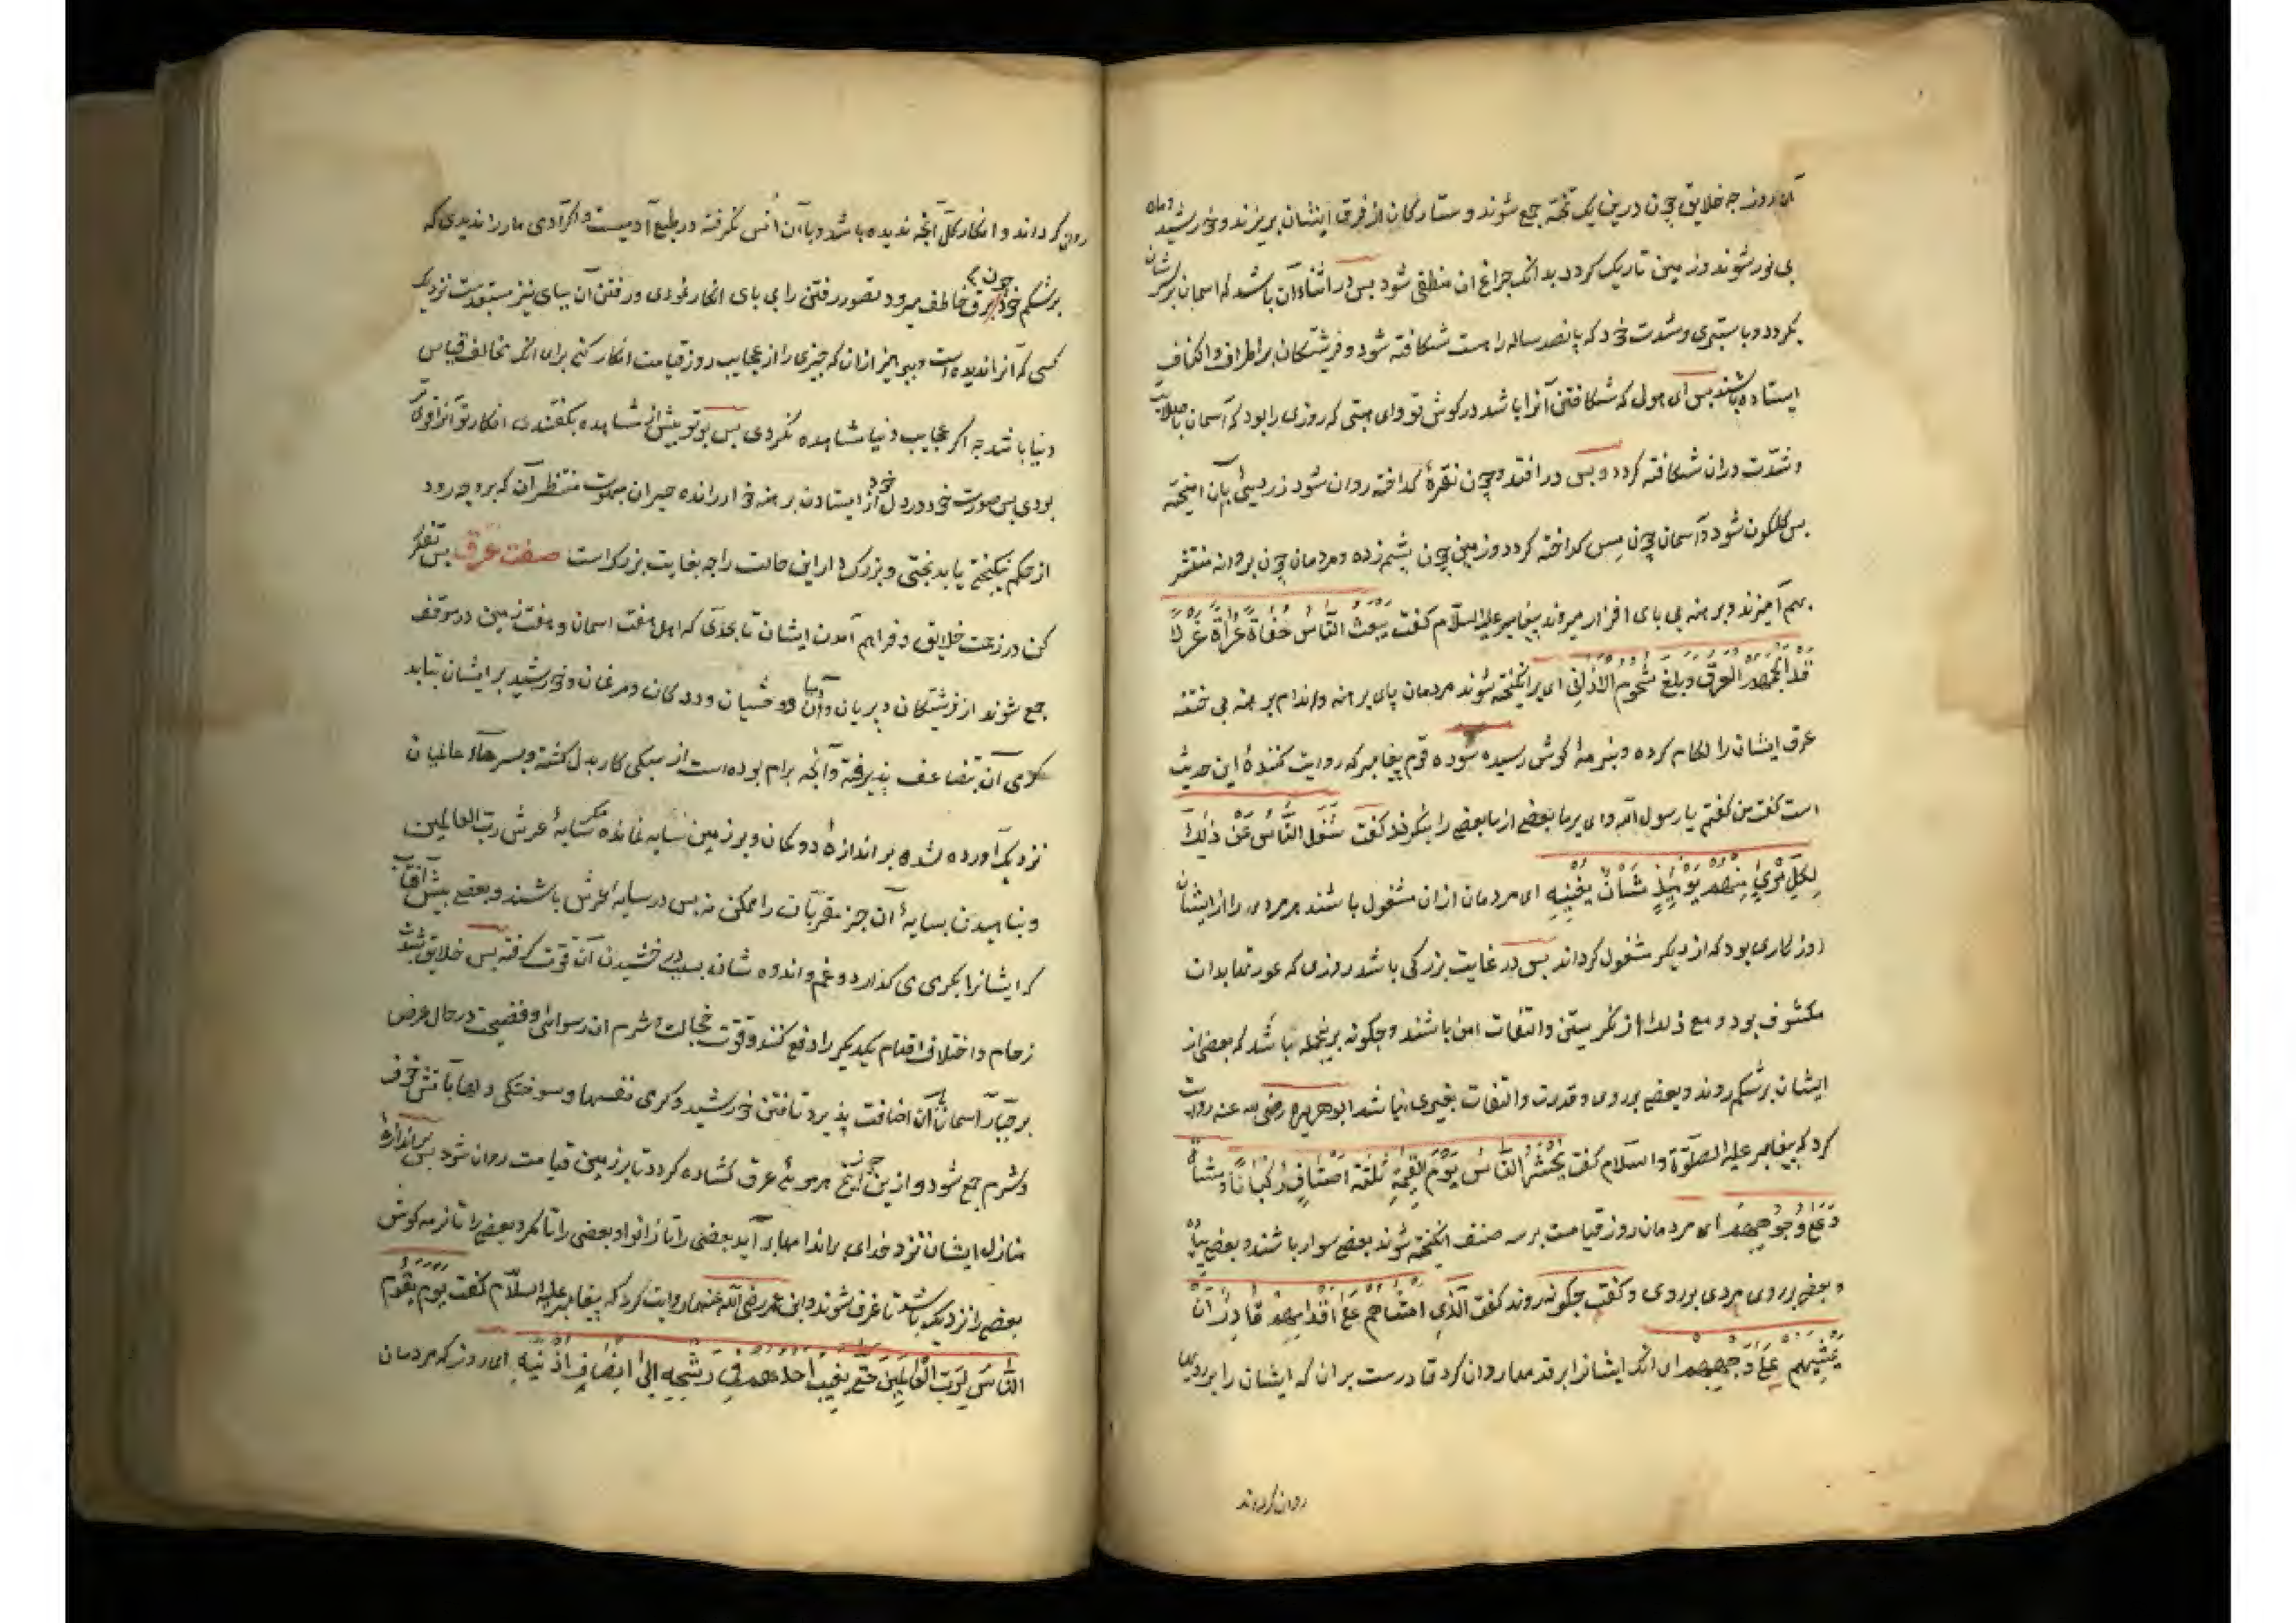 آن روز جه خلایق چون درین یک تخته جمع شوند و ستارکان از فرق ایشان بریزند و خورشید و ماه
بی نور شوند و زمین تاریک کردد بدانک چراغ ان منطفی شود بس در اثناء آن باشد که اسمان برسرشان
بکردد و با ستبری و شدت خود که پانصد ساله راهست شکافته شود و فرشتکان بر اطراف و اکناف
ایستاده باشند بس ای هول که شکافتن آنرا باشد در کوش تو و ای هیبتی که روزی را بود که آسمان با صلابت
و شدّت دران شکافته کردد و بس در افتد و چون نقرهٔ کداخته روان شود زردیی بآن امیخته
بس کلکون شود و آسمان چون مس کداخته کردد و زمین چون پشم زده و مردمان چون بروانه منتشر
بهم آمیزند و برهنه بی بای افزار میروند پیغامبر علیه السلام کفت یبعث النّاس حفاة عراة غرلا
قد الجمهم العرق و بلغ شحوم الاذان ای برانکیخته شوند مردمان پای برهنه و اندام برهنه بی ختنه
عرق ایشان را لکام کرده و بنرمهٔ کوش رسیده سوده قوم پیغامبر که روایت کنندهٔ این حدیث
است کفت من کفتم یا رسول الله وای بر ما بعضی از ما بعضی را بنکرند کفت شغل النّاس عن ذلک
لکلّ امرئ منهم یومئذ شأن یغنیه ای مردمان ازان مشغول باشند هر مردی را از ایشان
روز کاری بود که از دیکر مشغول کرداند بس در غایت بزرکی باشد روزی که عورتها بدان
مکشوف بود و مع ذلک از نکریستن و التفات امن باشند و چکونه برینجمله نباشد که بعضی از
ایشان برشکم روند و بعضی بر روی و قدرت و التفات بغیری نباشد ابو هریره رضی الله عنه روایت
کرد که پیغامبر علیه الصلوة و السلام کفت یحشر النّاس یوم القیمة ثلثة اصناف رکبانًا و مشاة
و علی وجوههم ای مردمان روز قیامت بر سه صنف انکیخته شوند بعضی سوار باشند و بعضی بیاده
و بعضی بر روی مردی بوروی و کفت چکونه روند کفت الّذی امشاهم علی اقدامهم قادر ان
یمشیهم علی وجوههم ای انک ایشانرا بر قدمها روان کرد قادرست بران که ایشان را بر رویها
روان کرداند
روان کرداند و انکار کلّ آنچه ندیده باشد و باآن اُنس نکرفته در طبع آدمیست و اکر آدمی مار را ندیدی که
برشکم خود چون برق خاطف میرود تصور رفتن را بی بای انکار نمودی و رفتن آن ببای نیز مستبعدست نزدیک
کسی که آنرا ندیده است و ببرهیز ازان که چیزی را از عجایب روز قیامت انکار کنی برای انکه مخالف قیاس
دنیا باشد جه اکر عجایب دنیا مشاهده نکردی بس بر تو بیش از مشاهده بکفتندی انکار تو آنرا قوی
بودی بس صورت خود در دل خود از ایستادن برهنه خوار رانده حیران مبهوت منتظر آن که برو چه رود
از حکم نیکبختی یا بدبختی و بزرک دار این حالت را جه بغایت بزرکست صفت عرق بس تفکر
کن در زحمت خلایق و فراهم آمدن ایشان تا بحدّی که اهل هفت اسمان و هفت زمین در موقف
جمع شوند از فرشتکان و پریان و آدمیان و وحشیان و ددکان و مرغان و خورشید بر ایشان بتابد
کرمی آن تضاعف پذیرفته و آنچه برام بوده است از سبکی کار بدل کشته و بسرهاء عالمیان
نزدیک آورده شده بر اندازهٔ دو کمان و بر زمین سایه نمانده مکر سایهٔ عرش ربّ العالمین
و بناهیدن بسایهٔ آن جز مقرّبان را ممکن نه بس در سایهٔ عرش باشند و بعضی بیش آفتاب
که ایشانرا بکرمی می کدازد و غم و اندوه شان بسبب درخشیدن آن قوت کرفته بس خلایق بشدت
زحام و اختلاف اقدام یکدیکر را دفع کنند و قوّت خجالت و شرم از رسوایی و فضیحت در حال عرض
بر جبّار آسمان با آن اضافت پذیرد تا تافتن خورشید و کرمی نفسها و سوختکی دلها بآتش خوف
و شرم جمع شود و از بن هر موئی عرق کشاده کردد تا بر زمین قیامت روان شود بس بر اندازهٔ
منازل ایشان نزد خدای بر اندامها بر آید بعضی را تا زانو و بعضی را تا کمر و بعضی را تا نرمه کوش
بعضی را نزدیک باشد تا غرق شوند و ابن عمر رضی الله عنهما روایت کرد که پیغامبر علیه السلام کفت یوم یقوم
النّاس لربّ العالمین حتی یغیب احدهم فی رشحه الی انصاف اذنیه ای روز که مردمان